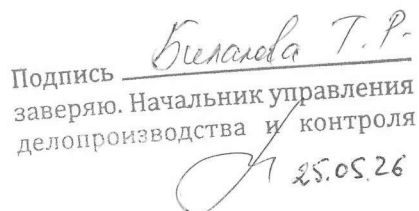 Подпись Билалова Т. Р.
заверяю. Начальник управления
делопроизводства и контроля
25.05.26